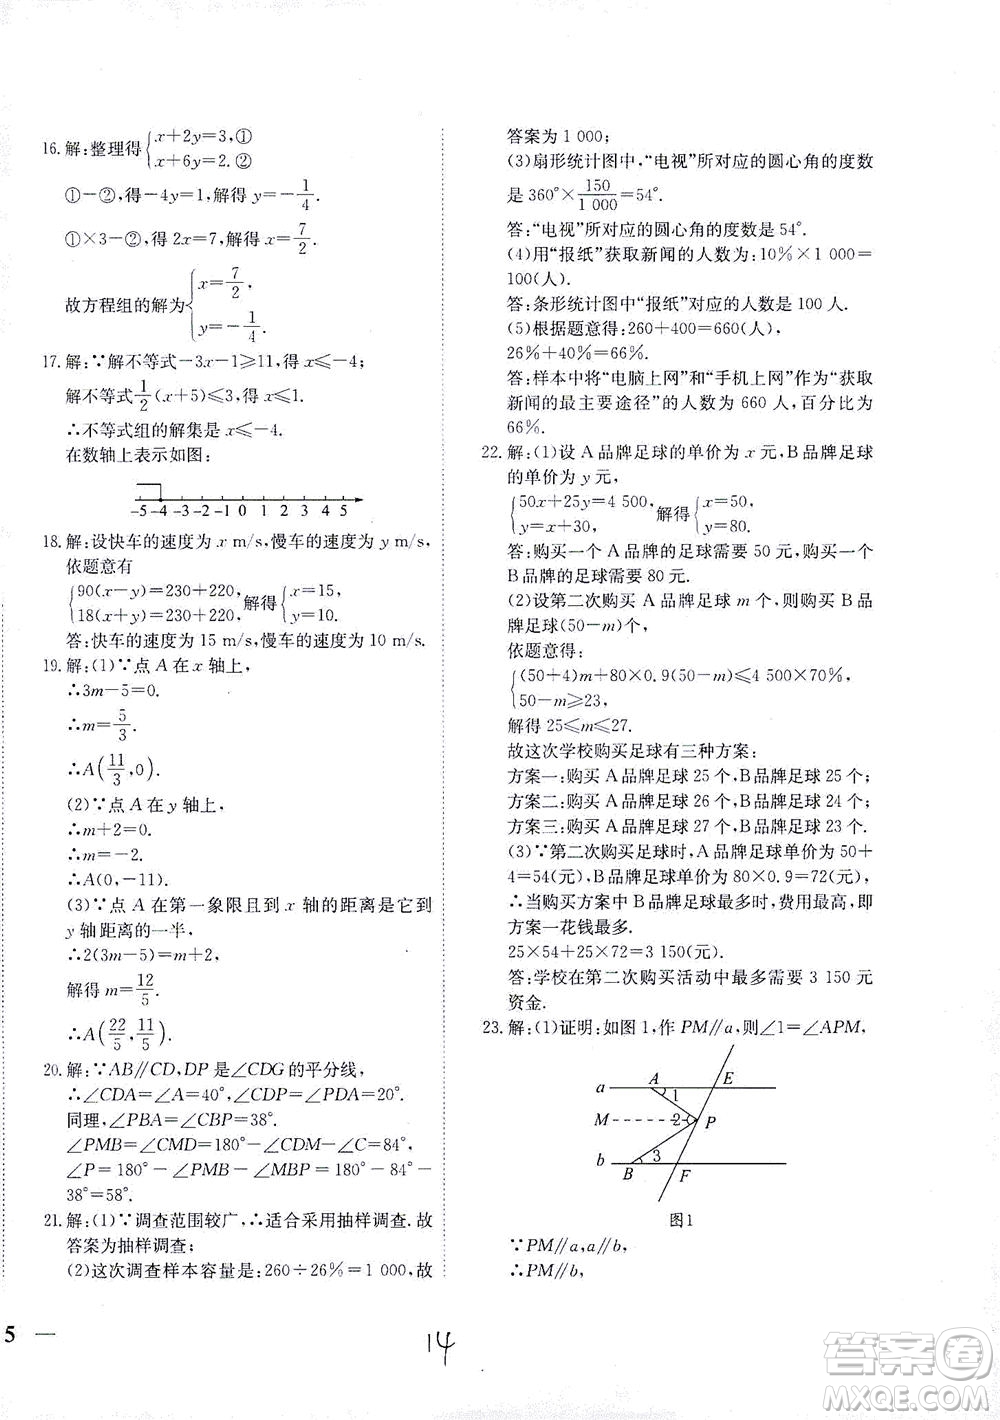 16. 解:整理得{x+2y=3,①
x+6y=2.②
①-②,得-4y=1,解得 y=-1/4.
①×3-②,得 2x=7,解得 x=7/2.
故方程组的解为{x=7/2,
y=-1/4.
17. 解:∵解不等式-3x-1≥11,得 x≤-4;
解不等式1/2(x+5)≤3,得 x≤1,
∴不等式组的解集是 x≤-4.
在数轴上表示如图:
-5 -4 -3 -2 -1 0 1 2 3 4 5
18. 解:设快车的速度为 x m/s,慢车的速度为 y m/s,
依题意有
{90(x-y)=230+220,
18(x+y)=230+220,解得{x=15,
y=10.
答:快车的速度为 15 m/s,慢车的速度为 10 m/s.
19. 解:(1)∵点 A 在 x 轴上,
∴3m-5=0.
∴m=5/3.
∴A(11/3,0).
(2)∵点 A 在 y 轴上,
∴m+2=0.
∴m=-2.
∴A(0,-11).
(3)∵点 A 在第一象限且到 x 轴的距离是它到
y 轴距离的一半,
∴2(3m-5)=m+2,
解得 m=12/5.
∴A(22/5,11/5).
20. 解:∵AB∥CD,DP 是∠CDG 的平分线,
∴∠CDA=∠A=40°,∠CDP=∠PDA=20°.
同理,∠PBA=∠CBP=38°.
∠PMB=∠CMD=180°-∠CDM-∠C=84°.
∠P=180°-∠PMB-∠MBP=180°-84°-
38°=58°.
21. 解:(1)∵调查范围较广,∴适合采用抽样调查.故
答案为抽样调查;
(2)这次调查样本容量是:260÷26%=1 000,故
答案为 1 000;
(3)扇形统计图中,“电视”所对应的圆心角的度数
是 360°×150/1 000=54°.
答:“电视”所对应的圆心角的度数是 54°.
(4)用“报纸”获取新闻的人数为:10%×1 000=
100(人).
答:条形统计图中“报纸”对应的人数是 100 人.
(5)根据题意得:260+400=660(人),
26%+40%=66%.
答:样本中将“电脑上网”和“手机上网”作为“获取
新闻的最主要途径”的人数为 660 人,百分比为
66%.
22. 解:(1)设 A 品牌足球的单价为 x 元,B 品牌足球
的单价为 y 元,
{50x+25y=4 500,
y=x+30,解得{x=50,
y=80.
答:购买一个 A 品牌的足球需要 50 元,购买一个
B 品牌的足球需要 80 元.
(2)设第二次购买 A 品牌足球 m 个,则购买 B 品
牌足球(50-m)个,
依题意得:
{(50+4)m+80×0.9(50-m)≤4 500×70%,
50-m≥23,
解得 25≤m≤27.
故这次学校购买足球有三种方案:
方案一:购买 A 品牌足球 25 个,B 品牌足球 25 个;
方案二:购买 A 品牌足球 26 个,B 品牌足球 24 个;
方案三:购买 A 品牌足球 27 个,B 品牌足球 23 个.
(3)∵第二次购买足球时,A 品牌足球单价为 50+
4=54(元),B 品牌足球单价为 80×0.9=72(元),
∴当购买方案中 B 品牌足球最多时,费用最高,即
方案一花钱最多.
25×54+25×72=3 150(元).
答:学校在第二次购买活动中最多需要 3 150 元
资金.
23. 解:(1)证明:如图 1,作 PM∥a,则∠1=∠APM,
a A 1 E
M 2 P
b B 3 F
图1
∵PM∥a,a∥b,
∴PM∥b,
5 —
14
答案圈
MXQE.COM